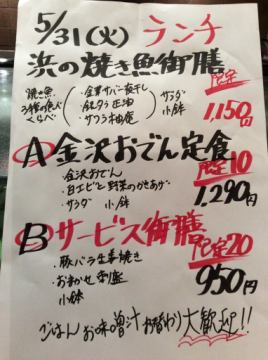 5/31(火) ランチ
浜の焼き魚御膳
焼き魚
3種の魚べくらべ
・金華サバ一夜干し
・銀ダラ正油
・サワラ柚庵
サラダ
小鉢
限定
1,150円
A 金沢おでん定食
限定10
・金沢おでん
・白エビと野菜のかきあげ
・サラダ 小鉢
1,290円
B サービス御膳
限定20
・豚バラ生姜焼き
・おまかせ
小鉢
950円
ごはん お味噌汁 お替わり 大歓迎!!